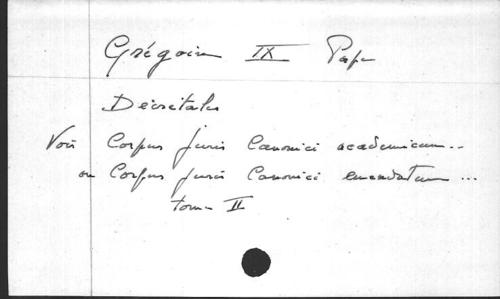 Grégoire IX Pape
Décrétales
Voir Corpus juris Canonici academicum...
ou Corpus juris Canonici emendatum ...
tome II